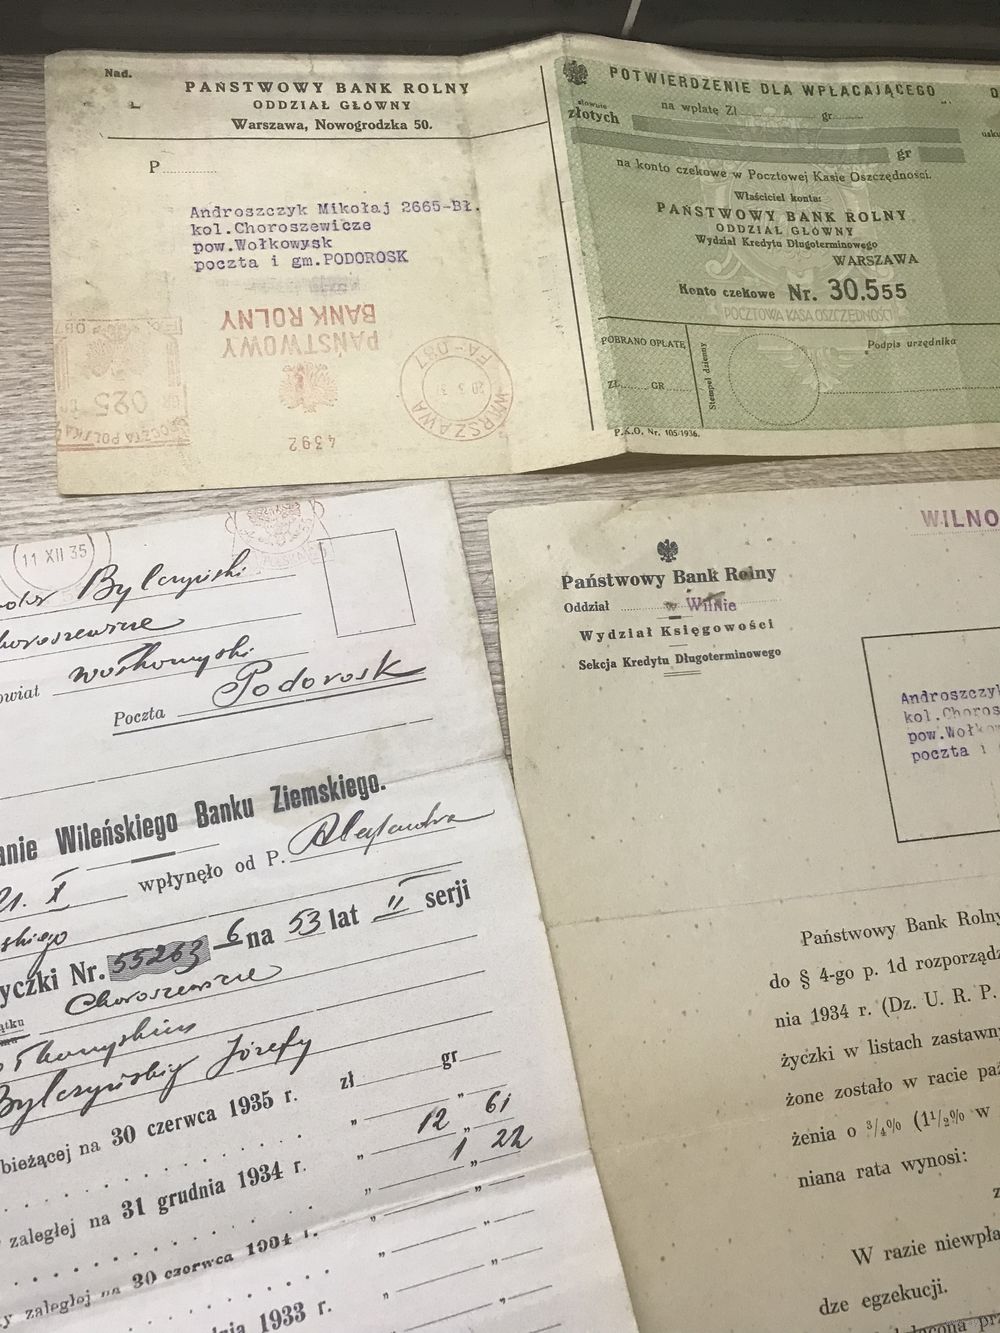 Nad.
PAŃSTWOWY BANK ROLNY
ODDZIAŁ GŁÓWNY
Warszawa, Nowogrodzka 50.
P
Androszczyk Mikołaj 2665-Bł.
kol.Choroszewicze
pow.Wołkowysk
poczta i gm.PODOROSK
PAŃSTWOWY
BANK ROLNY
4392
WARSZAWA
025
POCZTA POLSKA
POTWIERDZENIE DLA WPŁACAJĄCEGO
na wpłatę Zł gr
słownie
złotych
gr
na konto czekowe w Pocztowej Kasie Oszczędności.
Właściciel konta:
PAŃSTWOWY BANK ROLNY
ODDZIAŁ GŁÓWNY
Wydział Kredytu Długoterminowego
WARSZAWA
Konto czekowe Nr. 30.555
POCZTOWA KASA OSZCZĘDNOŚCI
POBRANO OPŁATĘ
ZŁ GR
Stempel dzienny
Podpis urzędnika
P.K.O. Nr. 105/1936.
11 XII 35
Bylczyński
Choroszewicze
wołkomyski
Poczta Podorosk
anie Wileńskiego Banku Ziemskiego.
21. X wpłynęło od P. Aleksandra
skiego
yczki Nr. 55263 6 na 53 lat II serji
Choroszewicze
Bylczyńskiej Józefy
bieżącej na 30 czerwca 1935 r. zł gr
" 12 " 61
zaległej na 31 grudnia 1934 r. " 1 " 22
y zaległej na 30 czerwca 1934 r. " "
dnia 1933 r. " "
WILNO
Państwowy Bank Rolny
Oddział w Wilnie
Wydział Księgowości
Sekcja Kredytu Długoterminowego
Androszczy
kol.Choros
pow.Wołkow
poczta i
Państwowy Bank Rolny
do § 4-go p. 1d rozporząd
nia 1934 r. (Dz. U. R. P.
życzki w listach zastawn
żone zostało w racie paź
żenia o ¾% (1½% w
niana rata wynosi:
z
W razie niewpła
dze egzekucji.